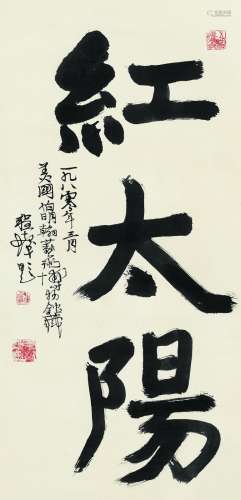 紅太陽
一九八零年三月
美國伯明翰藝術博物館
程十髮題